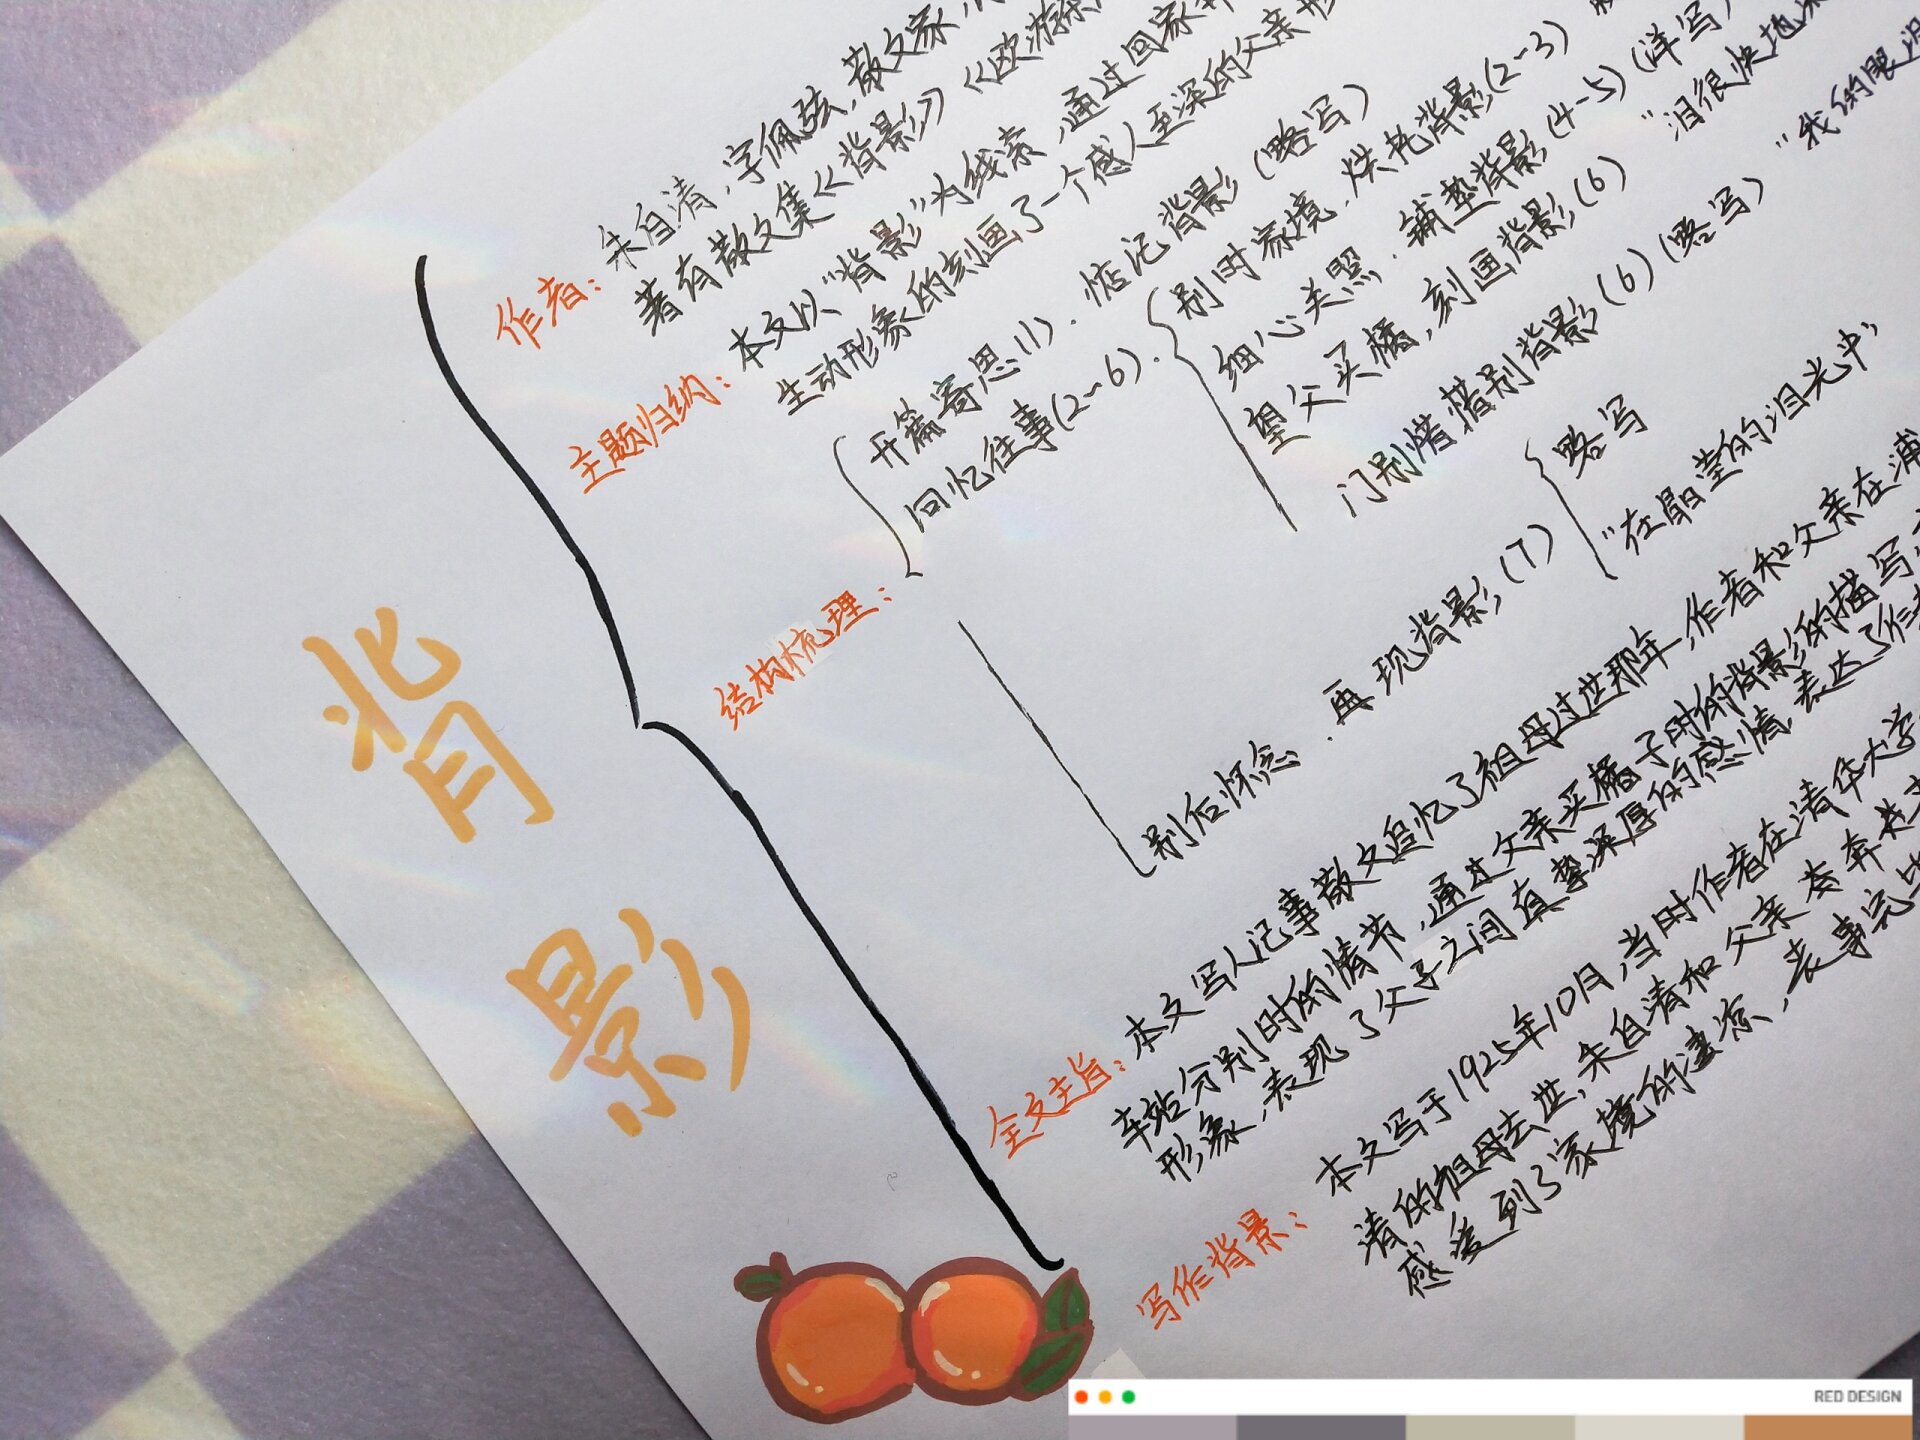 背影
作者：朱自清，字佩弦，散文家，
著有散文集《背影》《欧游杂
主题归纳：本文以“背影”为线索，通过回家
生动形象的刻画了一个感人至深的父亲形
结构梳理：
开篇寄思(1)．惦记背影（略写）
回忆往事(2~6)．
别时家境．烘托背影(2~3)
细心关照．铺垫背影(4~5)(详写
望父买橘，刻画背影(6) “泪很快地
门别惜惜别背影(6)(略写) “我的眼泪
别后怀念．再现背影(7)
略写
“在晶莹的泪光中”
全文主旨：本文写人记事散文追忆了祖母过世那年，作者和父亲在浦
车站分别时的情节，通过父亲买橘子时的背影的描写
形象，表现了父子之间真挚深厚的感情，表达了作者
写作背景：本文写于1925年10月，当时作者在清华大学
清的祖母去世，朱自清和父亲去奔丧
感受到了家境的凄凉，丧事完毕
RED DESIGN